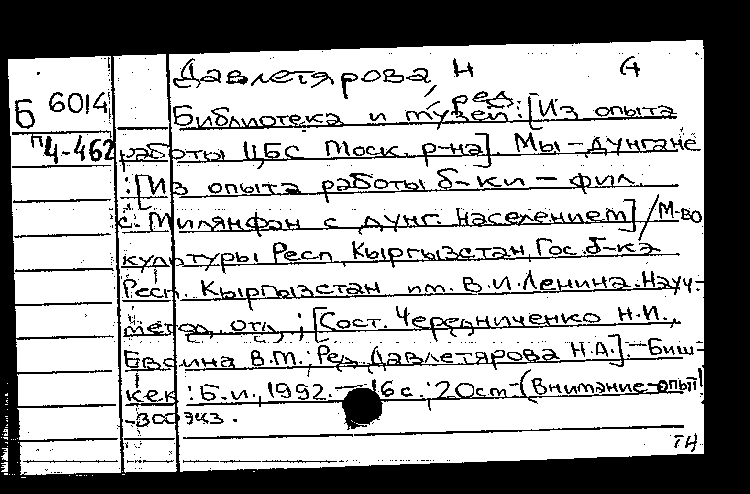 Давлетярова, Н А
ред.
Б 6014
Библиотека и музей: [Из опыта
П4-462
работы ЦБС Моск. р-на]. Мы - дунгане
: [Из опыта работы б-ки - фил.
с. Милянфан с дунг. населением] / М-во
культуры Респ. Кыргызстан, Гос. б-ка
Респ. Кыргызстан им. В.И. Ленина. Науч.-
метод. отд.; [Сост. Чередниченко Н.И.,
В.М.; Ред. Давлетярова Н.А.]. - Биш-
кек: Б.и., 1992. - 16 с.; 20 см - (Внимание-опыт!)
-300 экз.